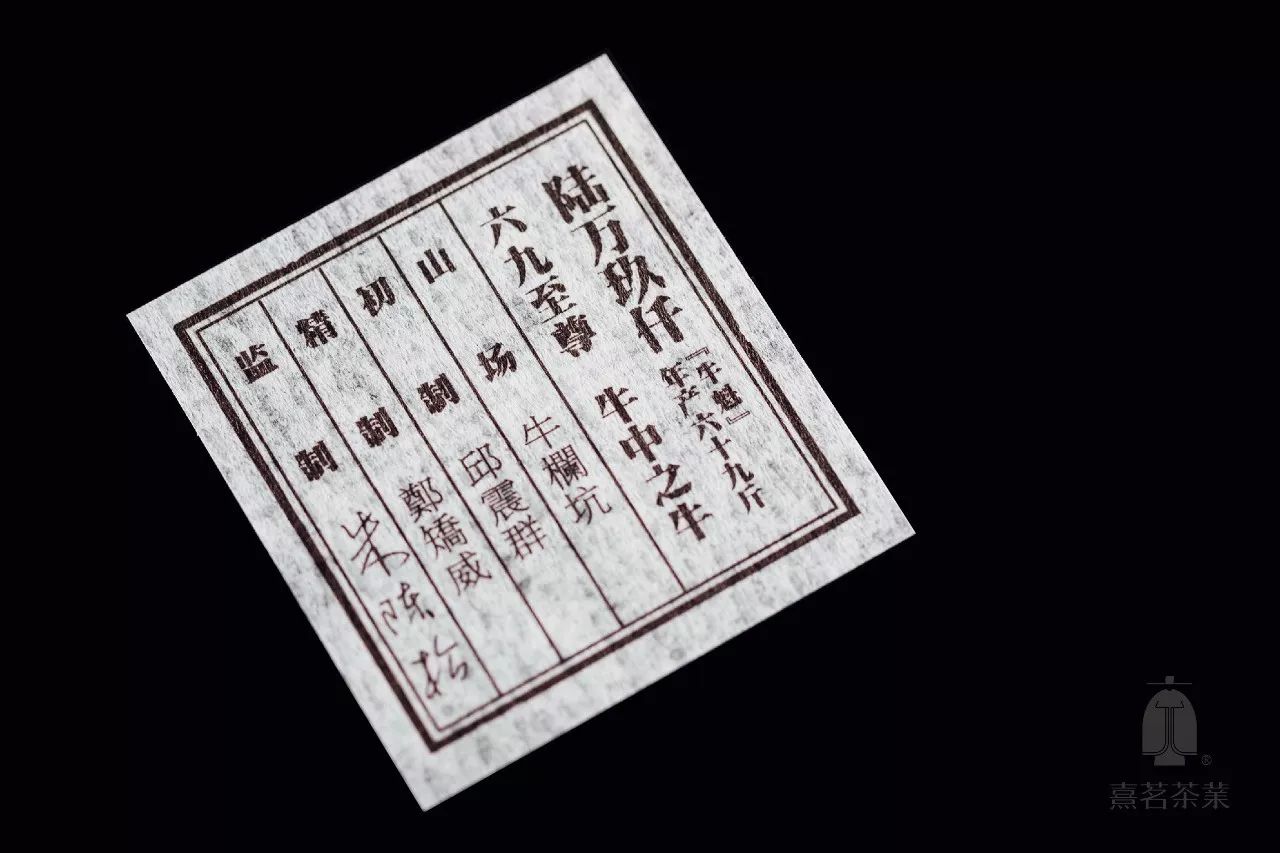 陆万玖仟
『牛魁』
年产六十九斤
六九至尊 牛中之牛
山场 牛欄坑
初制 邱震群
精制 鄭矯威
监制 朱陈松
熹茗茶業
®